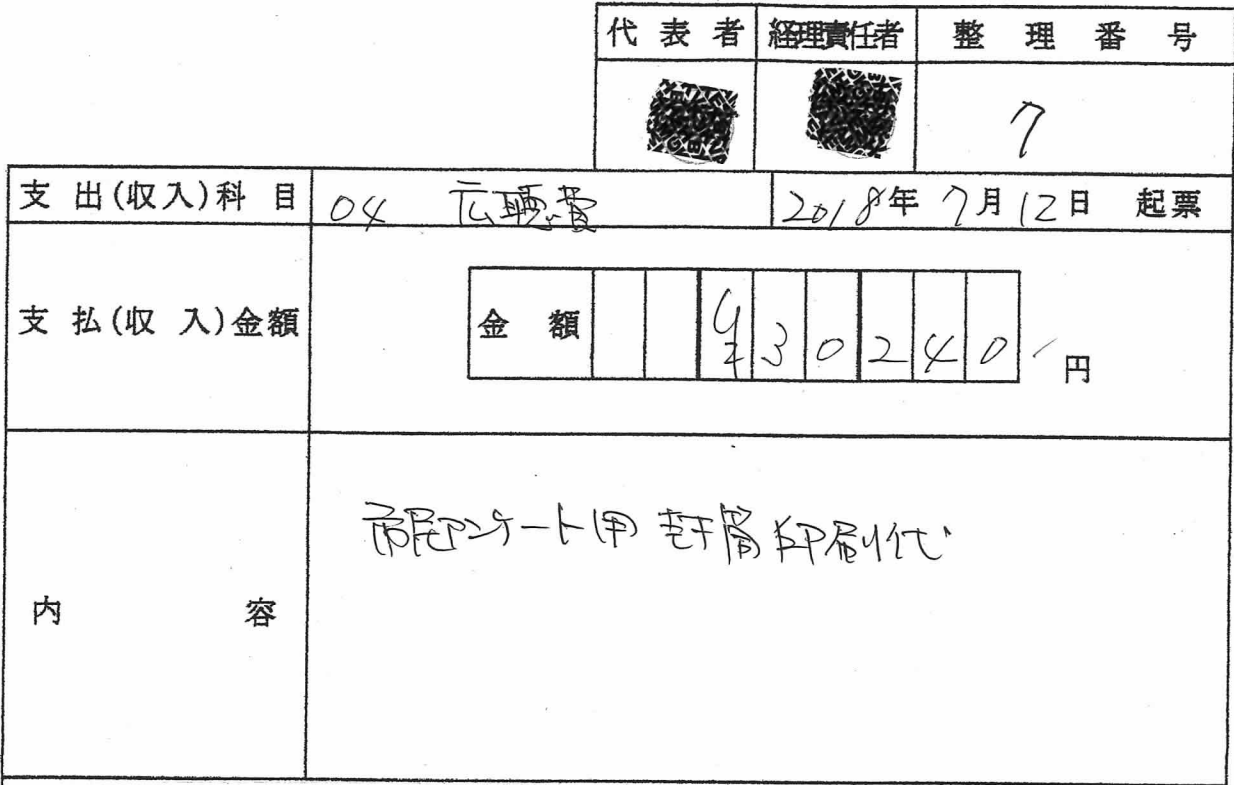 代表者 経理責任者 整理番号
7
支出(収入)科目 04 広聴費 2018年 7月 12日 起票
支払(収入)金額 金額 ¥30240 円
内容 市民アンケート用 封筒印刷代